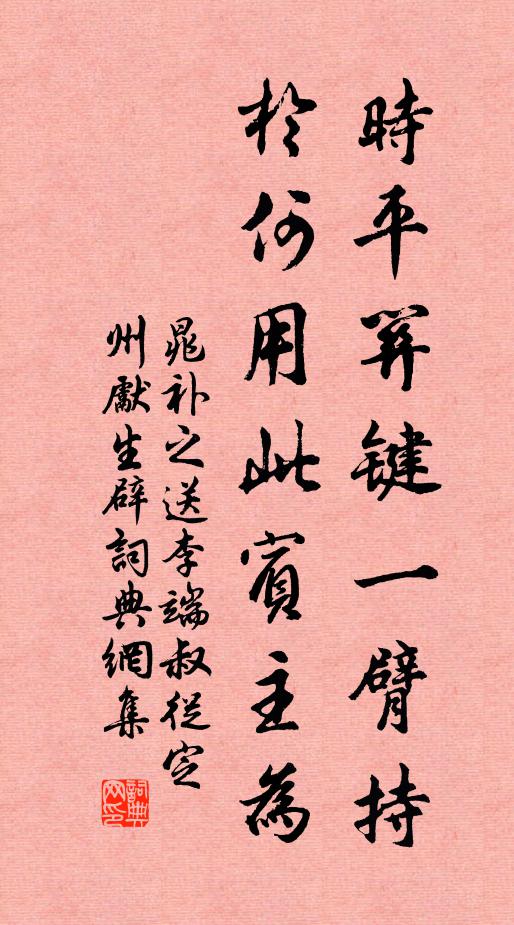 時平關鍵一臂持
於何用此賓主為
晁补之送李端叔從定
州獻生辟詞典網集
詞典
网印